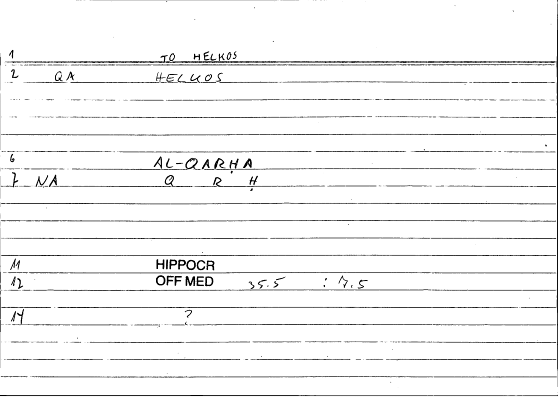 1 TO HELKOS
2 QA HELKOS
6 AL-QARḤA
7 NA Q R Ḥ
11 HIPPOCR
12 OFF MED 35.5 : 7.5
14 ?